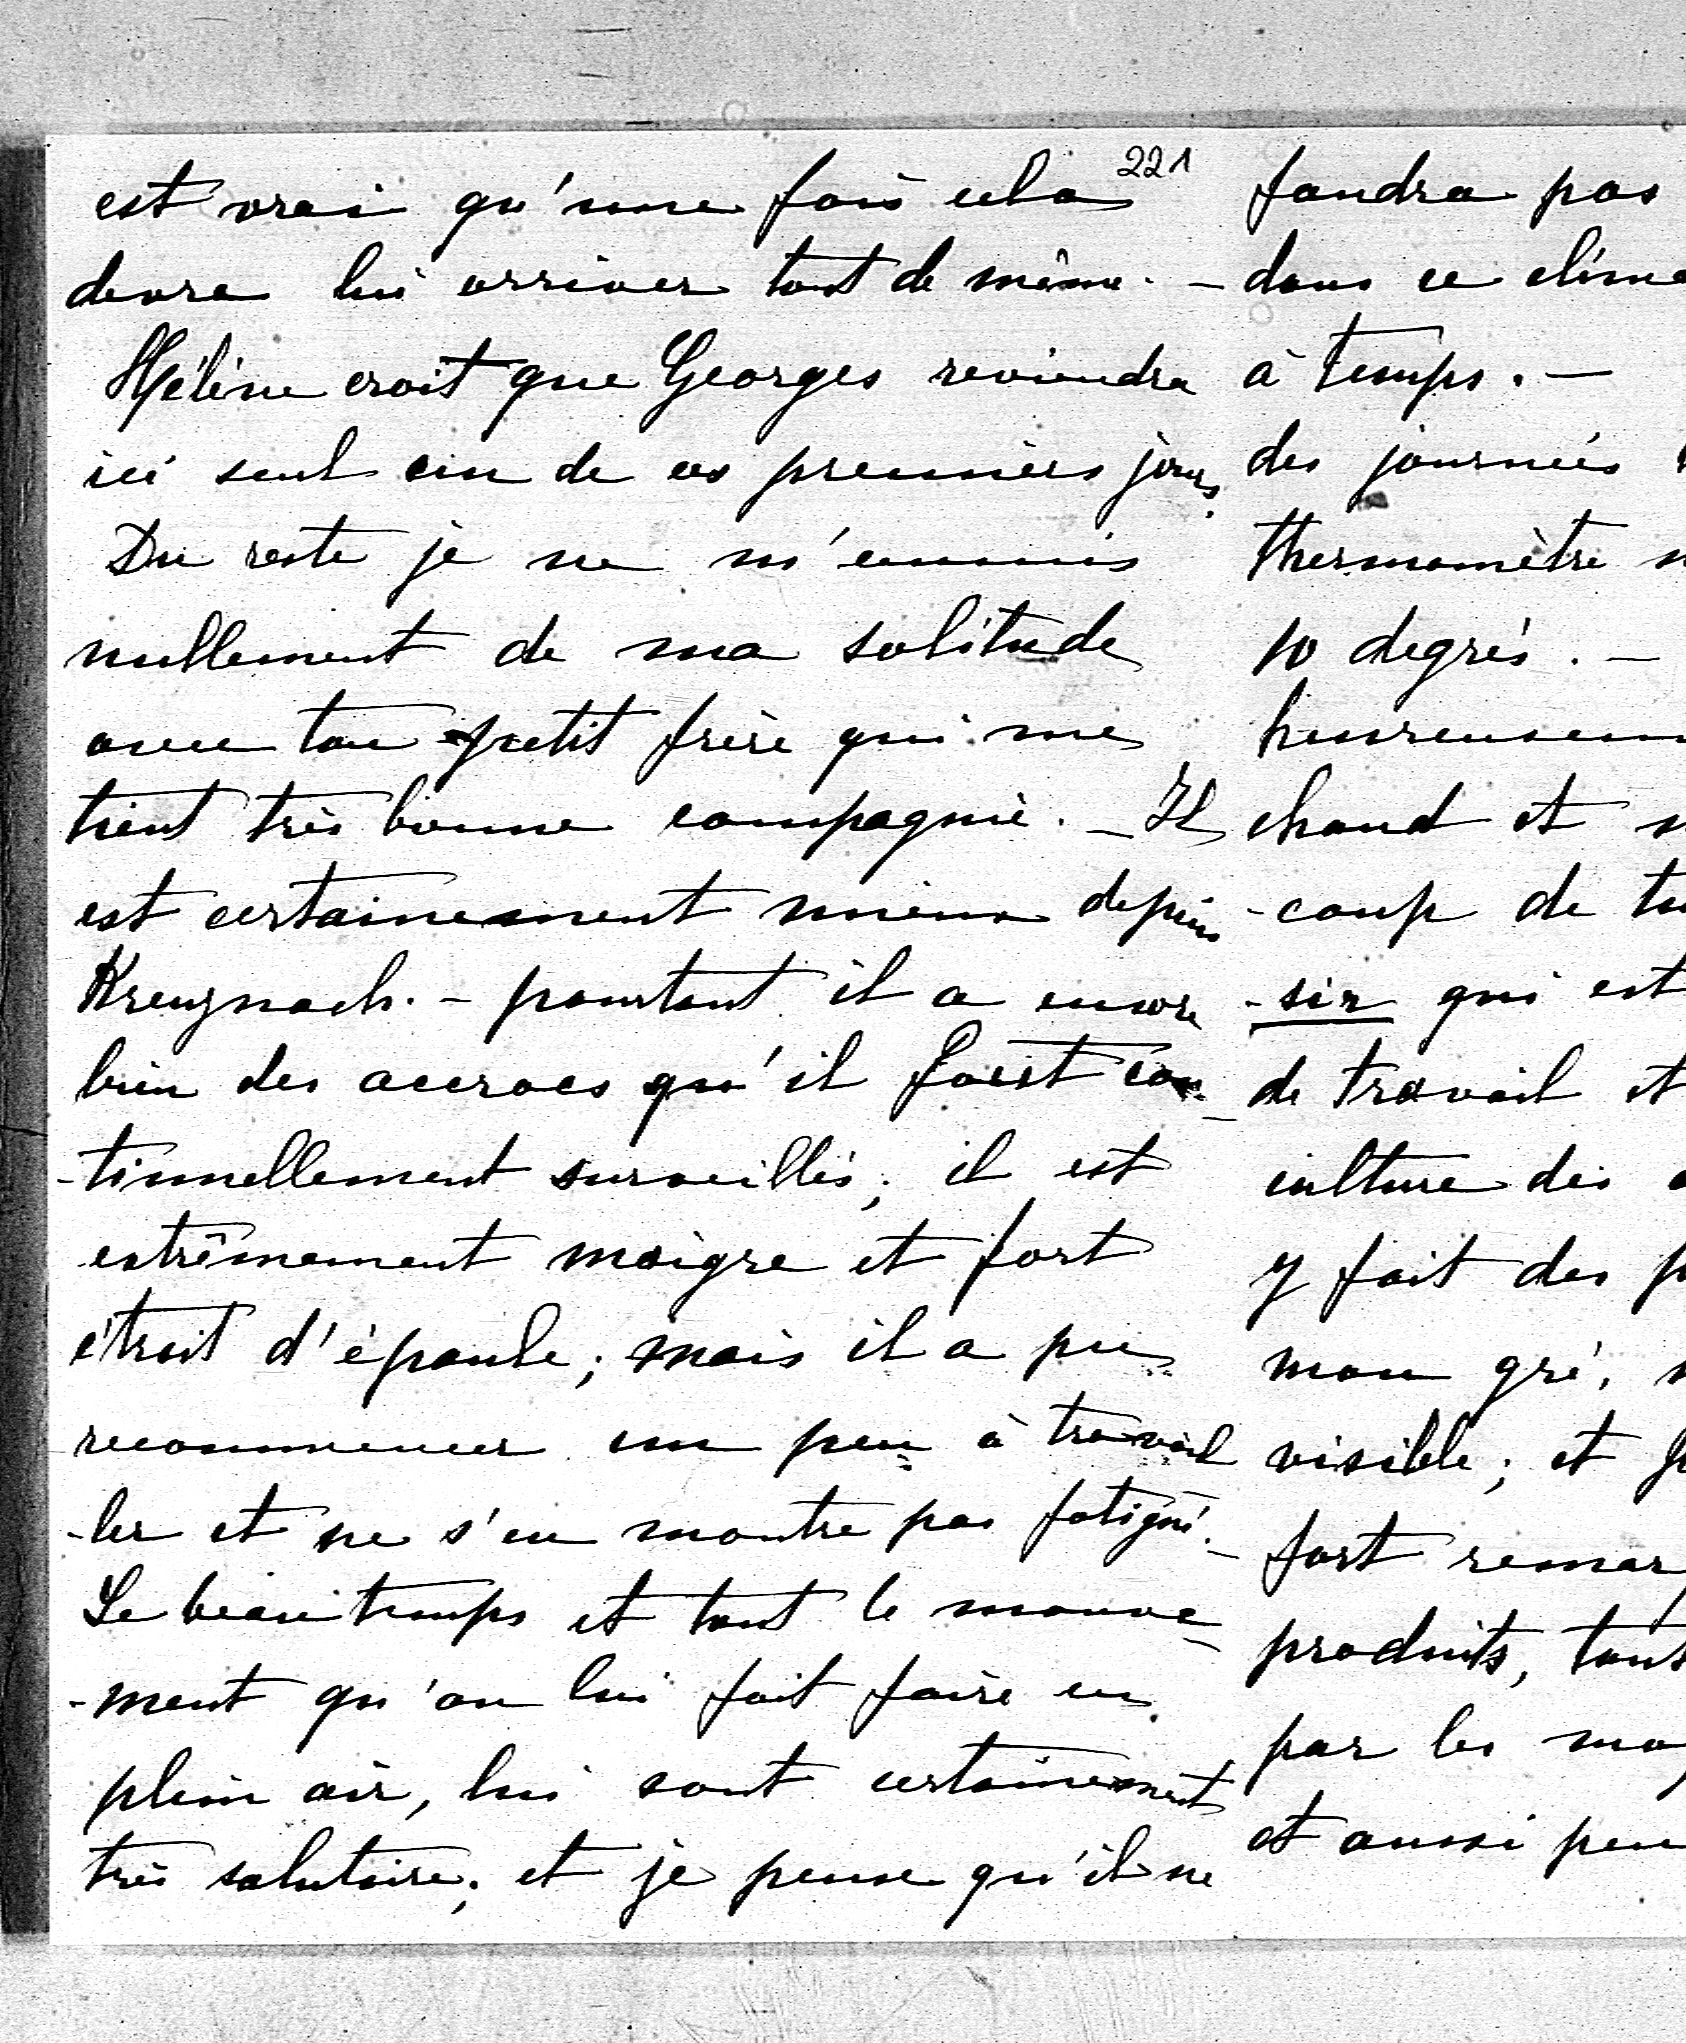 221
est vrai qu'une fois cela
devra lui arriver tout de même. -
Hélène croit que Georges reviendra
ici seul un de ces premiers jours.
Du reste je ne m'ennuis
nullement de ma solitude
avec ton petit frère qui me
tient très bonne compagnie. - Il
est certainement mieux depuis
Kreuznach. - pourtant il a encore
bien des accrocs qu'il faist con-
-tinuellement surveillés; il est
extrêmement maigre et fort
étroit d'épaule; mais il a pu
recommencer un peu à travail
-ler et ne s'en montre pas fatigué. -
Le beau temps et tout le mouve-
-ment qu'on lui fait faire en
plein air, lui sont certainement
très salutaire; et je pense qu'il ne
faudra pas
dans ce clima
à temps. -
des journées
thermomètre
10 degrés. -
heureusem
chaud et
-coup de tu
-sir qui est
de travail et
culture des
y fait des p
mon gré,
visible; et p
fort remar
produits, tout
par les mo
et aussi peu